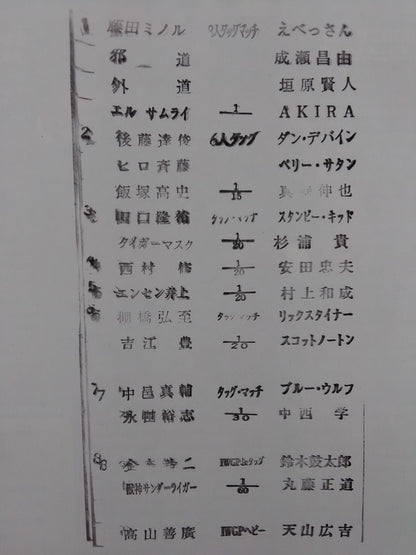 1 藤田ミノル 8人タッグマッチ えべっさん
邪道 成瀬昌由
外道 垣原賢人
エル サムライ 1 AKIRA
2 後藤達俊 6人タッグ ダン・デバイン
ヒロ斉藤 ペリー・サタン
飯塚高史 1/15 真 伸也
3 田口隆祐 タッグ・マッチ スタンピー・キッド
タイガーマスク 1/20 杉浦 貴
4 西村 修 1/20 安田忠夫
5 エンセン井上 1/20 村上和成
6 棚橋弘至 タッグマッチ リックスタイナー
吉江 豊 1/20 スコットノートン
7 中邑真輔 タッグ・マッチ ブルー・ウルフ
永田裕志 1/30 中西 学
8 金本浩二 IWGPJr.タッグ 鈴木鼓太郎
獣神サンダーライガー 1/60 丸藤正道
高山善廣 IWGPヘビー 天山広吉